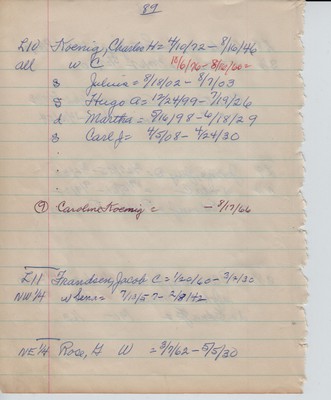 89
L10 Koenig, Charlie H = 4/10/72 - 8/16/46
all w C 10/6/76 - 8/10/60
s Julius = 8/18/02 - 8/7/03
s Hugo A = 12/24/99 - 7/19/26
d Martha = 8/16/98 - 6/18/29
s Carl J = 4/5/08 - 4/24/30
(9) Caroline Koenig = - 8/17/66
L11 Frandsen, Jacob C = 1/20/60 - 3/2/30
NW 1/4 w Sena = 7/13/57 - 2/8/42
NE 1/4 Rose, G W = 3/7/62 - 5/5/30